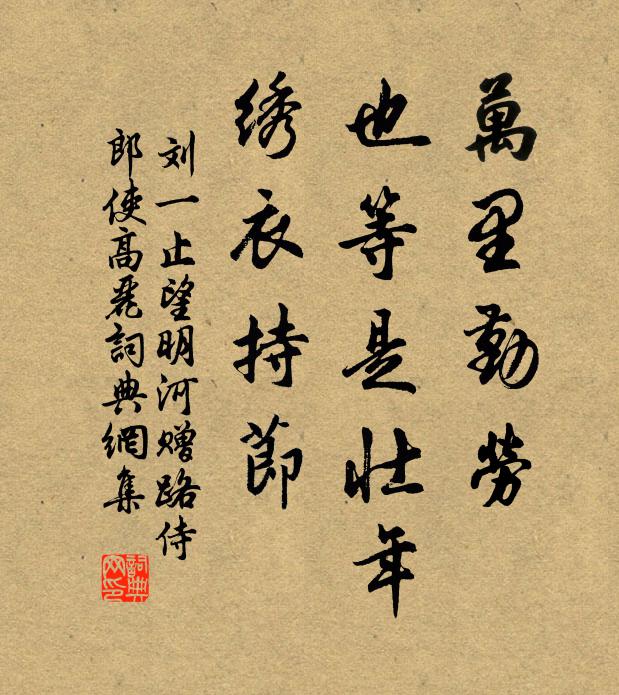 萬里勤勞
也等是壯年
绣衣持節
刘一止望明河赠路侍
郎使高麗詞典網集
詞典网印